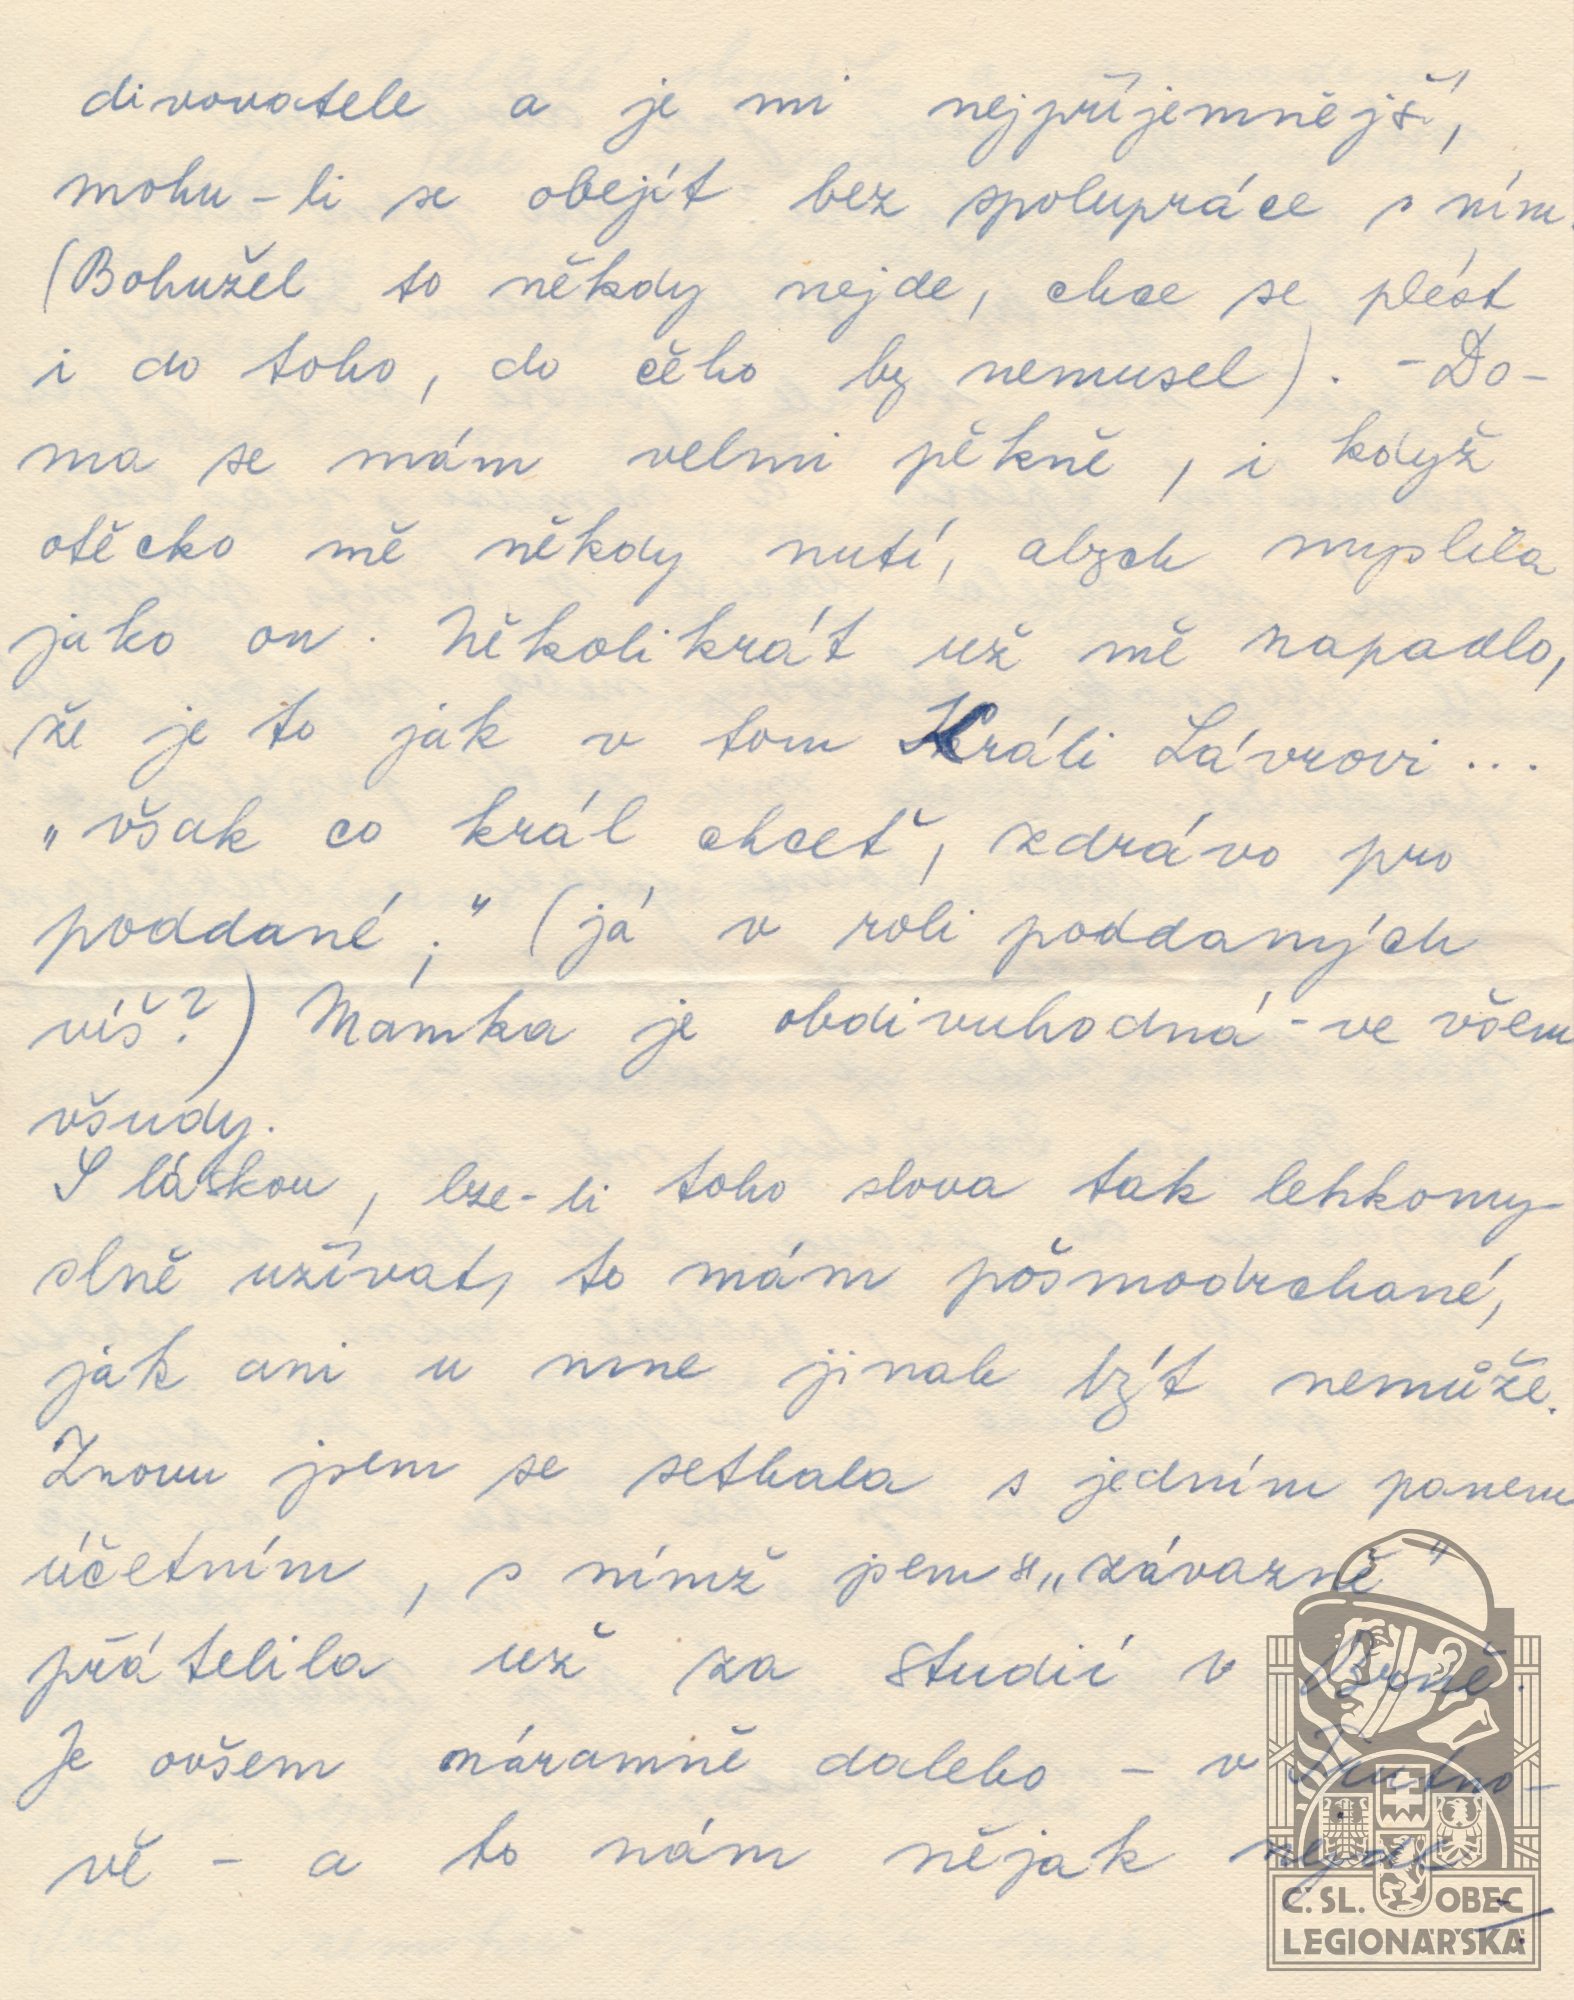 divovatele a je mi nejpříjemnější,
mohu-li se obejít bez spolupráce s ním.
(Bohužel to někdy nejde, chce se plést
i do toho, do čeho by nemusel). - Do-
ma se mám velmi pěkně, i když
otěcko mě někdy nutí, abych myslila
jako on. Několikrát už mě napadlo,
že je to jak v tom Králi Lávrovi...
„však co král chceť, zdrávo pro
poddané;" (já v roli poddaných
víš?) Mámka je obdivuhodná - ve všem
všudy.
S láskou, lze-li toho slova tak lehkomy-
slně užívat, to mám pošmodrchané,
jak ani u mne jinak být nemůže.
Znovu jsem se setkala s jedním panem
účetním, s nímž jsem s „závazně"
přátelila už za studií v Brně.
Je ovšem náramně daleko - v Trutno-
vě - a to nám nějak nejde
Č. SL. OBEC
LEGIONÁŘSKÁ